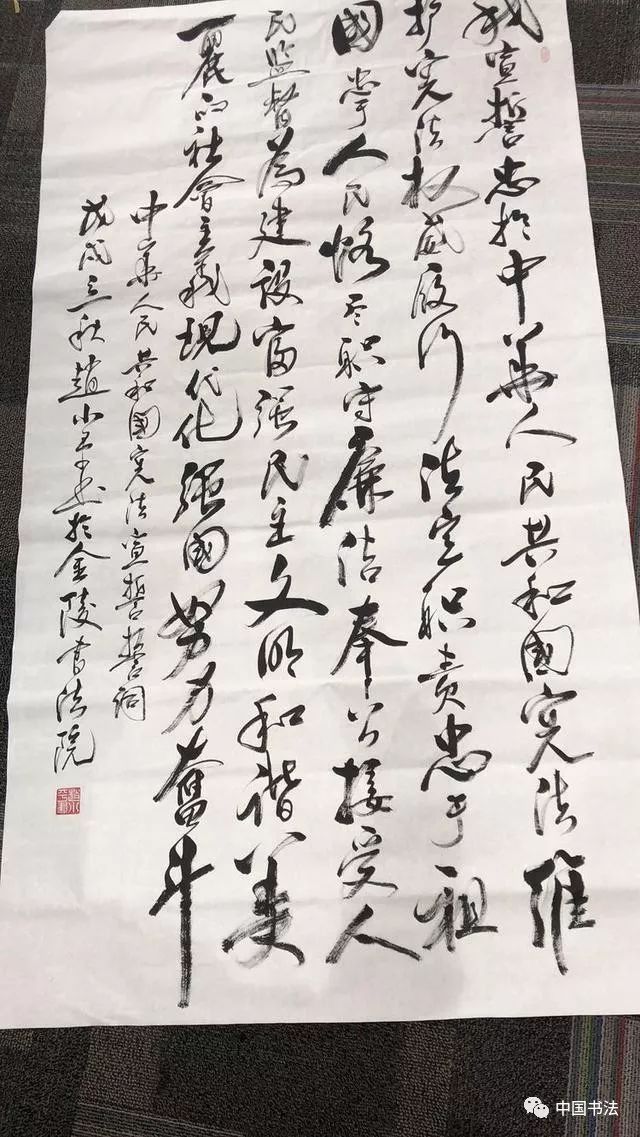 我宣誓忠於中華人民共和國宪法維
护宪法权威履行法定职责忠于祖
國忠于人民恪尽职守廉洁奉公接受人
民监督為建设富强民主文明和谐美
麗的社會主義現代化强國努力奮斗
中華人民共和國宪法宣誓誓词
戊戌之秋趙小平书於金陵书法院
中国书法